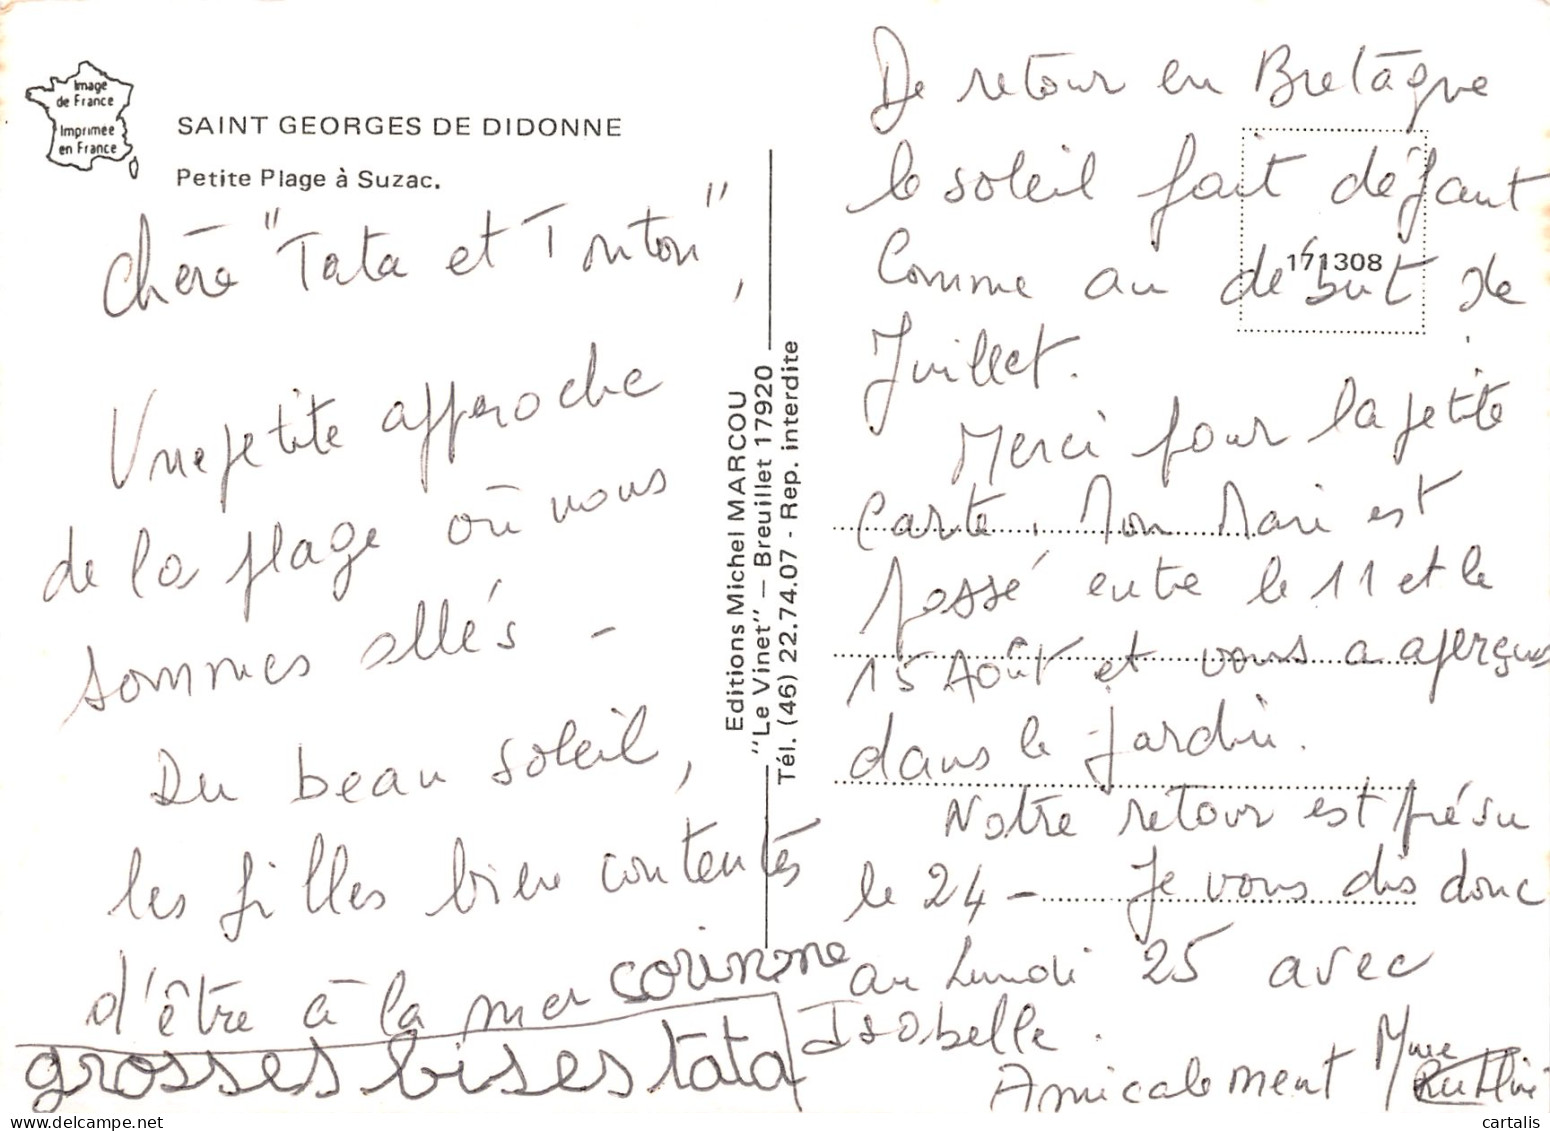 Image
de France
Imprimée
en France
SAINT GEORGES DE DIDONNE
Petite Plage à Suzac.
Chère "Tata et Tonton",
Une petite approche
de la plage où nous
sommes allés -
Du beau soleil,
les filles bien contentes
d'être à la mer
corinne
grosses bises tata
Editions Michel MARCOU
"Le Vinet" - Breuillet 17920
Tél. (46) 22.74.07 - Rep. interdite
171308
De retour en Bretagne
le soleil fait défaut
Comme au début de
Juillet.
Merci pour la petite
Carte. Mon Mari est
passé entre le 11 et le
15 Août et vous a aperçus
dans le jardin.
Notre retour est prévu
le 24 - Je vous dis donc
au Lundi 25 avec
Isabelle.
Amicalement Mme